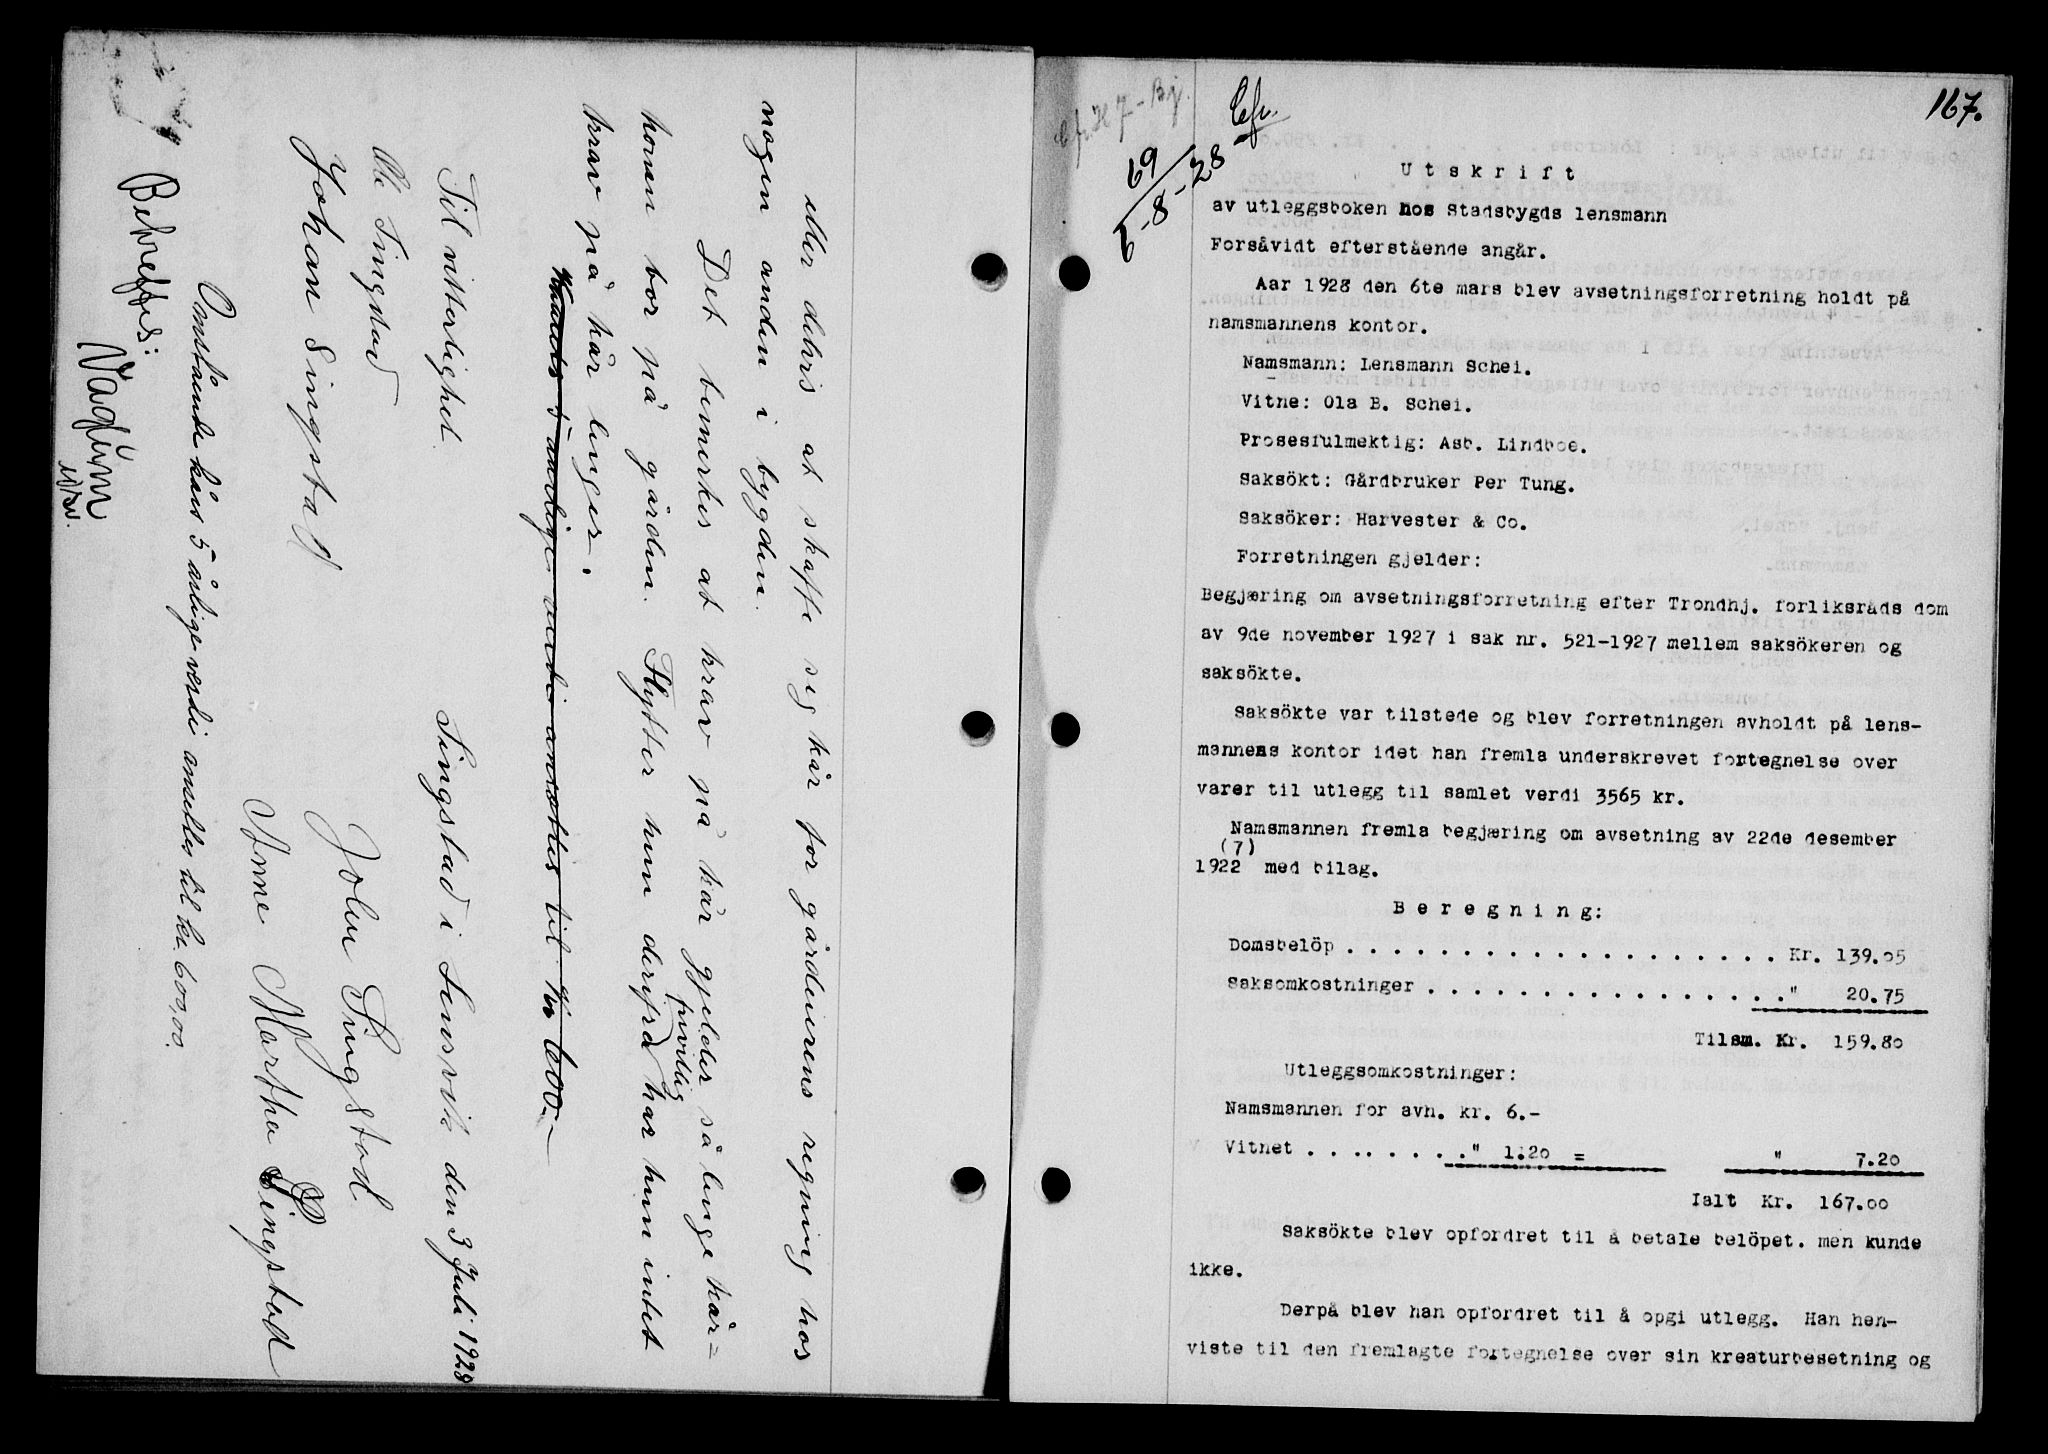 eller delvis at skaffe sig kår for gårdeierens regning hos
nogen anden i bygden.
Det bemerkes at krav på kår gjelder så lenge kår=
konen bor på gården. Flytter hun derifra frivillig har hun intet
krav på kår lenger.
Kaarets 5 aarlige verdi ansættes til kr 600.-
Singstad i Lensvik den 3 Juli 1928
Til vitterlighet
Ole Singstad
Johan Singstad
John Singstad
Anne Martha Singstad
Omstående kårs 5 årlige verdi ansettes til kr. 600,00.
Bekreftes:
167.
Cfr.
69
6-8-28
Utskrift
av utleggsboken hos Stadsbygds lensmann
Forsåvidt efterstående angår.
Aar 1928 den 6te mars blev avsetningsforretning holdt på
namsmannens kontor.
Namsmann: Lensmann Schei.
Vitne: Ola B. Schei.
Prosesfulmektig: Asb. Lindboe.
Saksökt: Gårdbruker Per Tung.
Saksöker: Harvester & Co.
Forretningen gjelder:
Begjæring om avsetningsforretning efter Trondhj. forliksråds dom
av 9de november 1927 i sak nr. 521-1927 mellem saksökeren og
saksökte.
Saksökte var tilstede og blev forretningen avholdt på lens-
mannens kontor idet han fremla underskrevet fortegnelse over
varer til utlegg til samlet verdi 3565 kr.
Namsmannen fremla begjæring om avsetning av 22de desember
(7)
1922 med bilag.
Beregning:
Domsbelöp . . . . . . . . . . . . . . . . . . . Kr. 139.05
Saksomkostninger . . . . . . . . . . . . . . . . " 20.75
Tilsm. Kr. 159.80
Utleggsomkostninger:
Namsmannen for avh. kr. 6.-
Vitnet . . . . . . . . " 1.20 = " 7.20
Ialt Kr. 167.00
Saksökte blev opfordret til å betale belöpet. men kunde
ikke.
Derpå blev han opfordret til å opgi utlegg. Han hen-
viste til den fremlagte fortegnelse over sin kreaturbesetning og